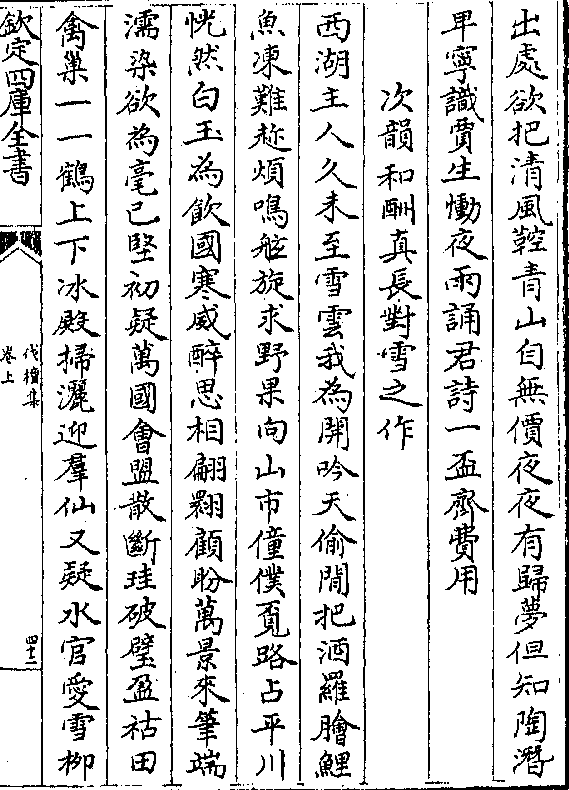 出處欲把清風鞚青山自無價夜夜有歸夢但知陶潛
早寧識賈生慟夜雨誦君詩一盃齊費用
次韻和酬真長對雪之作
西湖主人久未至雪雲我為開吟天偷閒把酒羅膾鯉
魚凍難趂煩鳴舷旋求野果向山市僮僕覓路占平川
恍然白玉為飲國寒威醉思相翩翾顧盼萬景來筆端
濡染欲為毫已堅初疑萬國會盟散斷珪破璧盈祜田
禽巢一一鶴上下冰殿掃灑迎羣仙又疑水官愛雪柳
欽定四庫全書
伐檀集
卷上
四十二